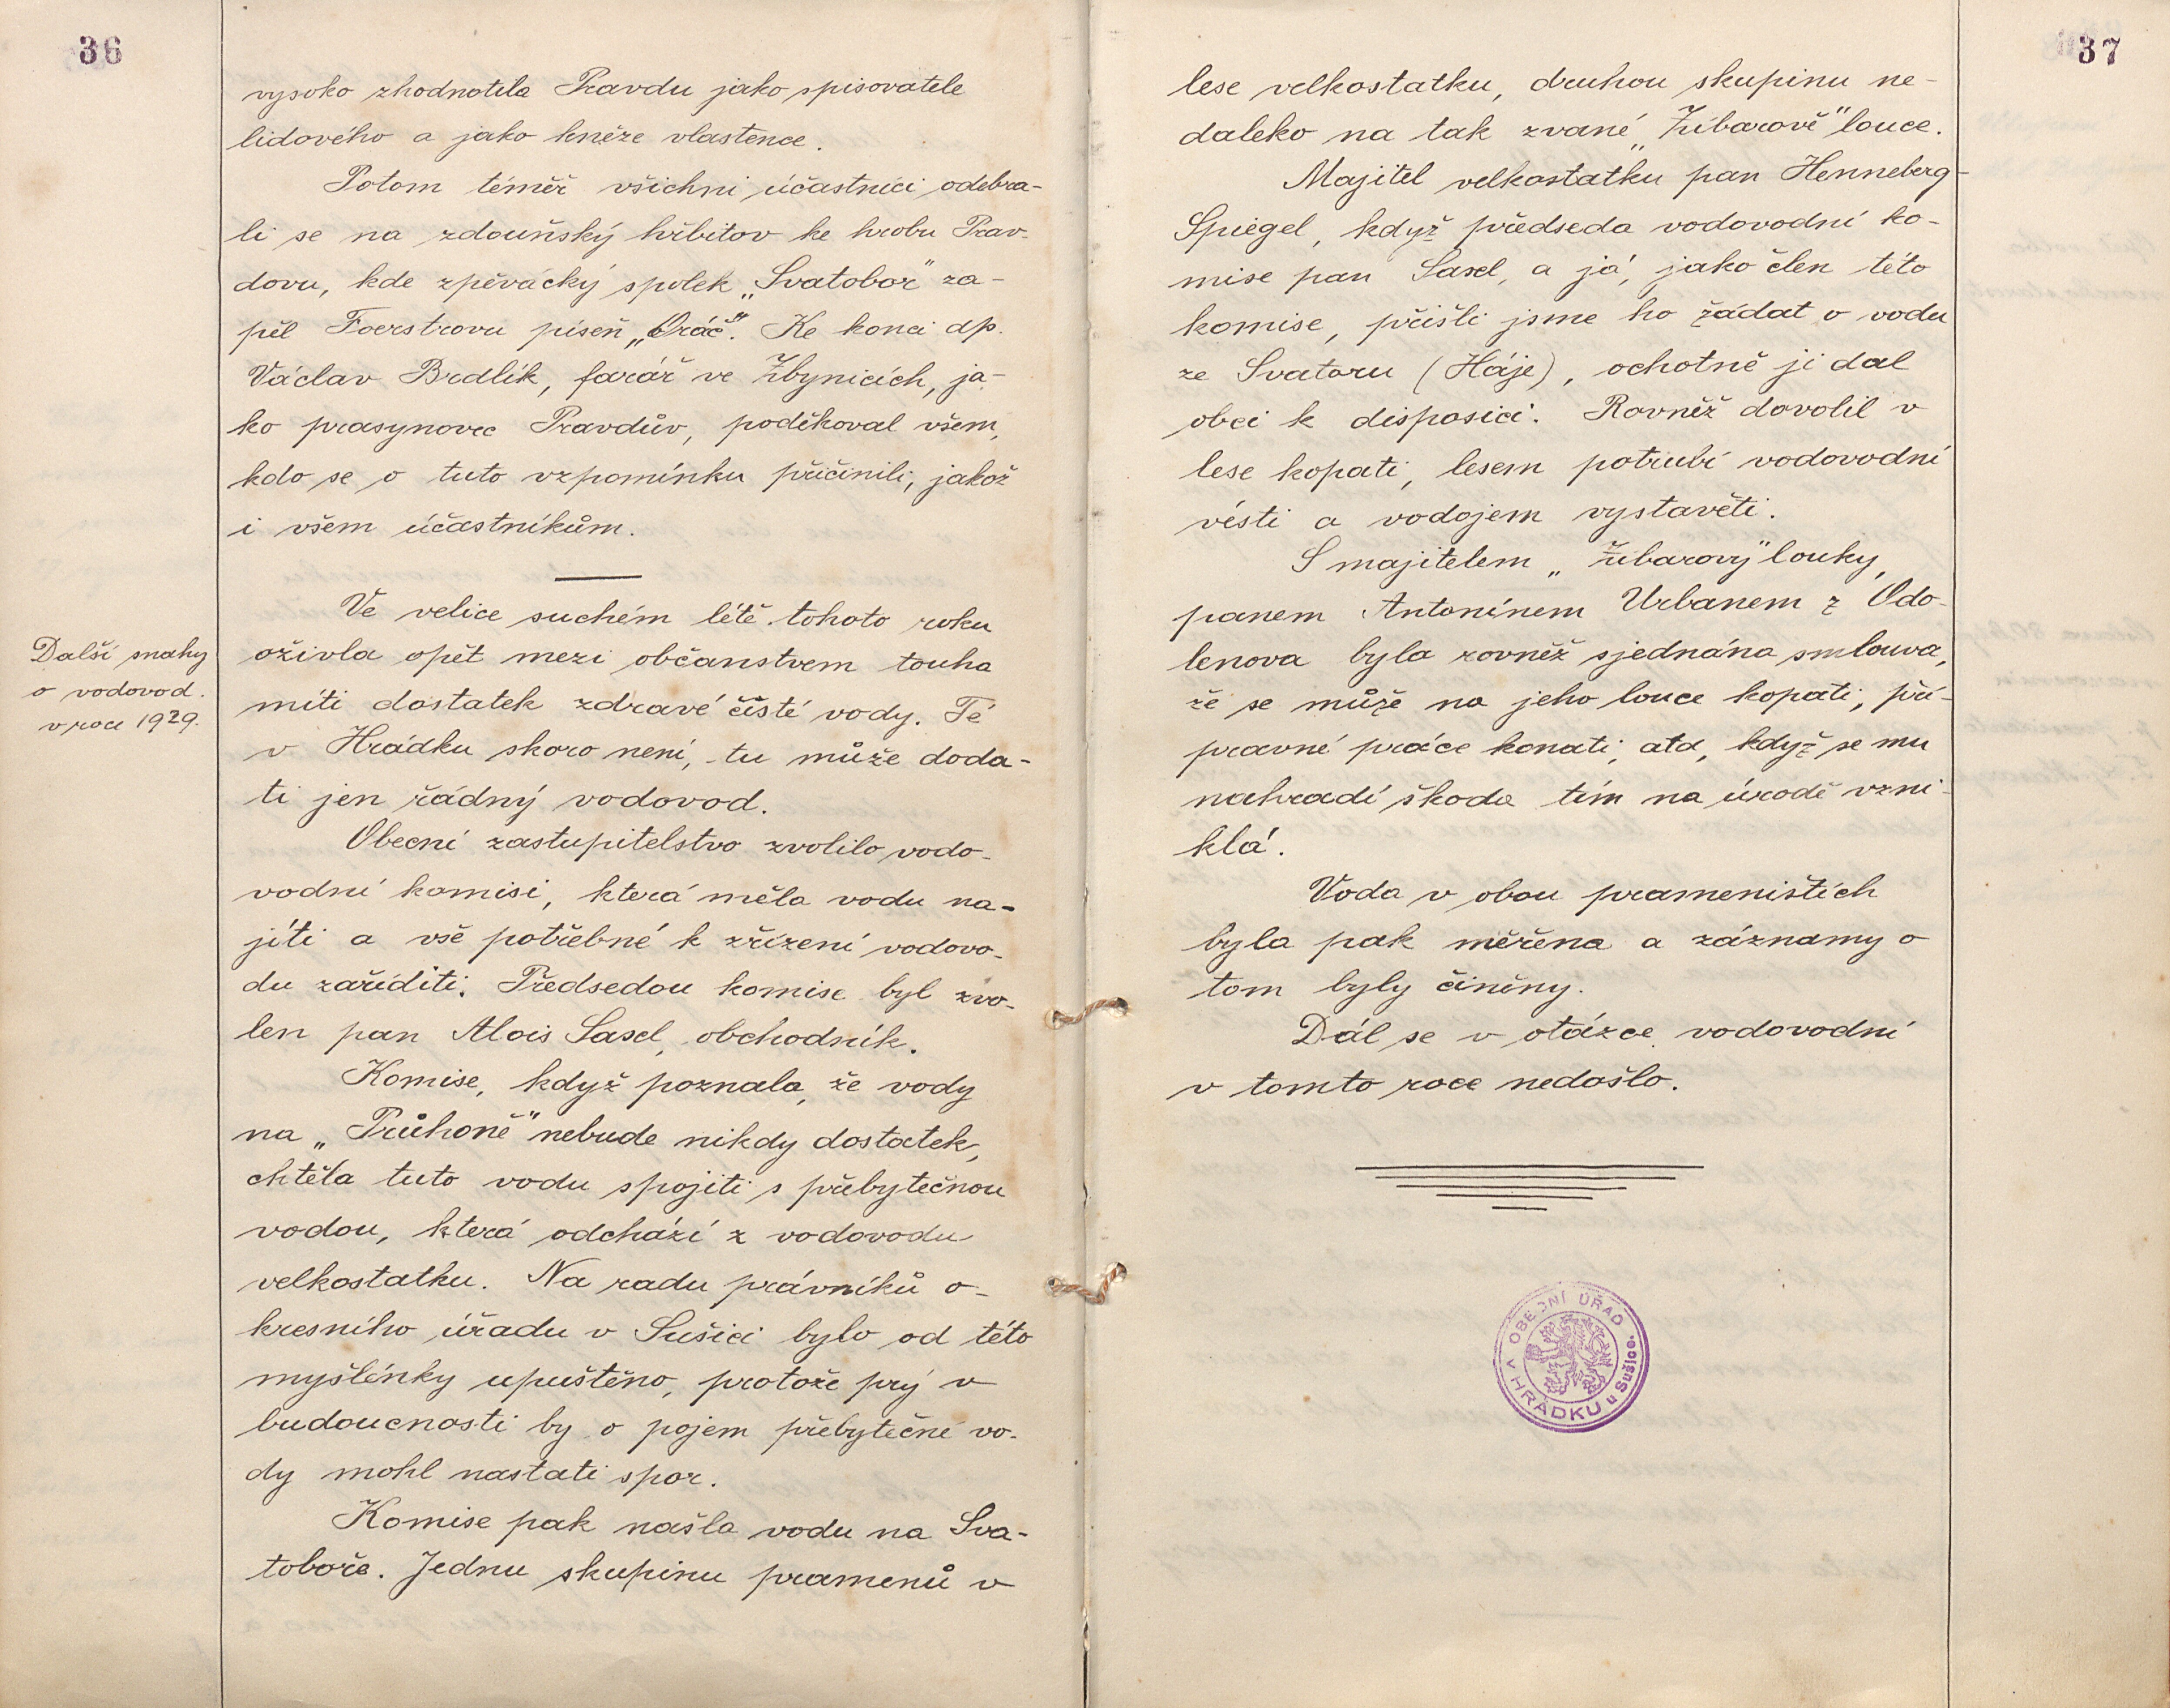 36
vysoko zhodnotila Pravdu jako spisovatele
lidového a jako kněze vlastence.
Potom téměř všichni účastníci odebra-
li se na zdouňský hřbitov ke hrobu Prav-
dovu, kde zpěvácký spolek „Svatobor" za-
pěl Foerstrovu píseň „Oráč". Ke konci dp.
Václav Brdlík, farář ve Zbynicích, ja-
ko prasynovec Pravdův, poděkoval všem,
kdo se o tuto vzpomínku přičinili, jakož
i všem účastníkům.
Další snahy
o vodovod.
v roce 1929.
Ve velice suchém létě tohoto roku
oživla opět mezi občanstvem touha
míti dostatek zdravé čisté vody. Té
v Hrádku skoro není, tu může doda-
ti jen řádný vodovod.
Obecní zastupitelstvo zvolilo vodo-
vodní komisi, která měla vodu na-
jíti a vše potřebné k zřízení vodovo-
du zaříditi. Předsedou komise byl zvo-
len pan Alois Sasel, obchodník.
Komise, když poznala, že vody
na „Průhoně" nebude nikdy dostatek,
chtěla tuto vodu spojiti s přebytečnou
vodou, která odchází z vodovodu
velkostatku. Na radu právníků o-
kresního úřadu v Sušici bylo od této
myšlénky upuštěno, protože prý v
budoucnosti by o pojem přebytečné vo-
dy mohl nastati spor.
Komise pak našla vodu na Sva-
toboře. Jednu skupinu pramenů v
37
lese velkostatku, druhou skupinu ne-
daleko na tak zvané „Žúbarově" louce.
Majitel velkostatku pan Henneberg-
Spiegel, když předseda vodovodní ko-
mise pan Sasel, a já, jako člen této
komise, přišli jsme ho žádat o vodu
ze Svatoru (Háje), ochotně ji dal
obci k disposici. Rovněž dovolil v
lese kopati, lesem potrubí vodovodní
vésti a vodojem vystavěti.
S majitelem „Žúbarovy" louky,
panem Antonínem Urbanem z Odo-
lenova byla rovněž sjednána smlouva,
že se může na jeho louce kopati, pří-
pravné práce konati, atd, když se mu
nahradí škoda tím na úrodě vzni-
klá.
Voda v obou prameništích
byla pak měřena a záznamy o
tom byly činěny.
Dál se v otázce vodovodní
v tomto roce nedošlo.
OBECNÍ ÚŘAD
V HRÁDKU u Sušice.